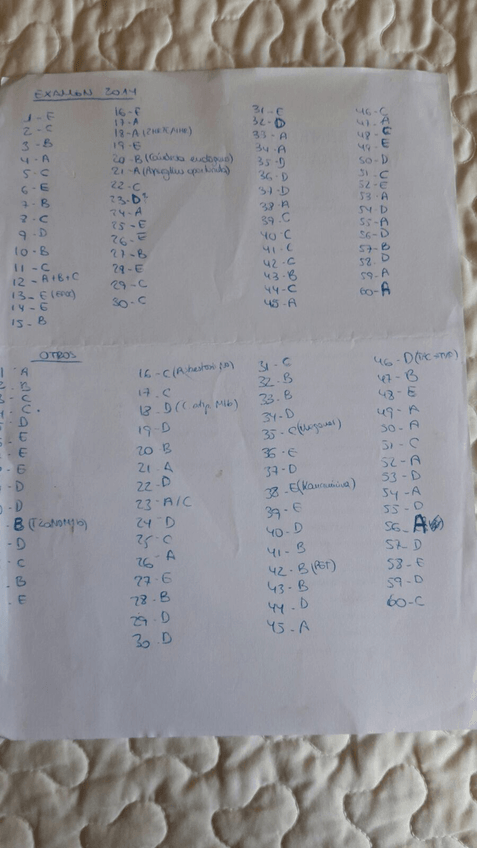 EXAMEN 2014
1 - E
2 - C
3 - B
4 - A
5 - C
6 - E
7 - B
8 - C
9 - D
10 - B
11 - C
12 - A+B+C
13 - E
14 - E
15 - B
16 - E
17 - A
18 - A
19 - E
20 - B
21 - A
22 - C
23 - D?
24 - A
25 - E
26 - E
27 - B
28 - E
29 - C
30 - C
31 - E
32 - D
33 - A
34 - A
35 - D
36 - D
37 - D
38 - A
39 - C
40 - C
41 - C
42 - C
43 - B
44 - C
45 - A
46 - C
47 - A
48 - C
49 - E
50 - D
51 - C
52 - E
53 - A
54 - D
55 - A
56 - D
57 - B
58 - D
59 - A
60 - A
OTROS
1 - A
B
C
C
D
E
E
- E
- D
- D
- B
- D
- C
- B
- E
16 - C
17 - C
18 - D
19 - D
20 - B
21 - A
22 - D
23 - A/C
24 - D
25 - C
26 - A
27 - E
28 - B
29 - D
30 - D
31 - C
32 - B
33 - B
34 - D
35 - C
36 - E
37 - D
38 - E
39 - E
40 - D
41 - B
42 - B
43 - B
44 - D
45 - A
46 - D
47 - B
48 - E
49 - A
50 - A
51 - C
52 - A
53 - D
54 - A
55 - D
56 - A
57 - D
58 - E
59 - D
60 - C